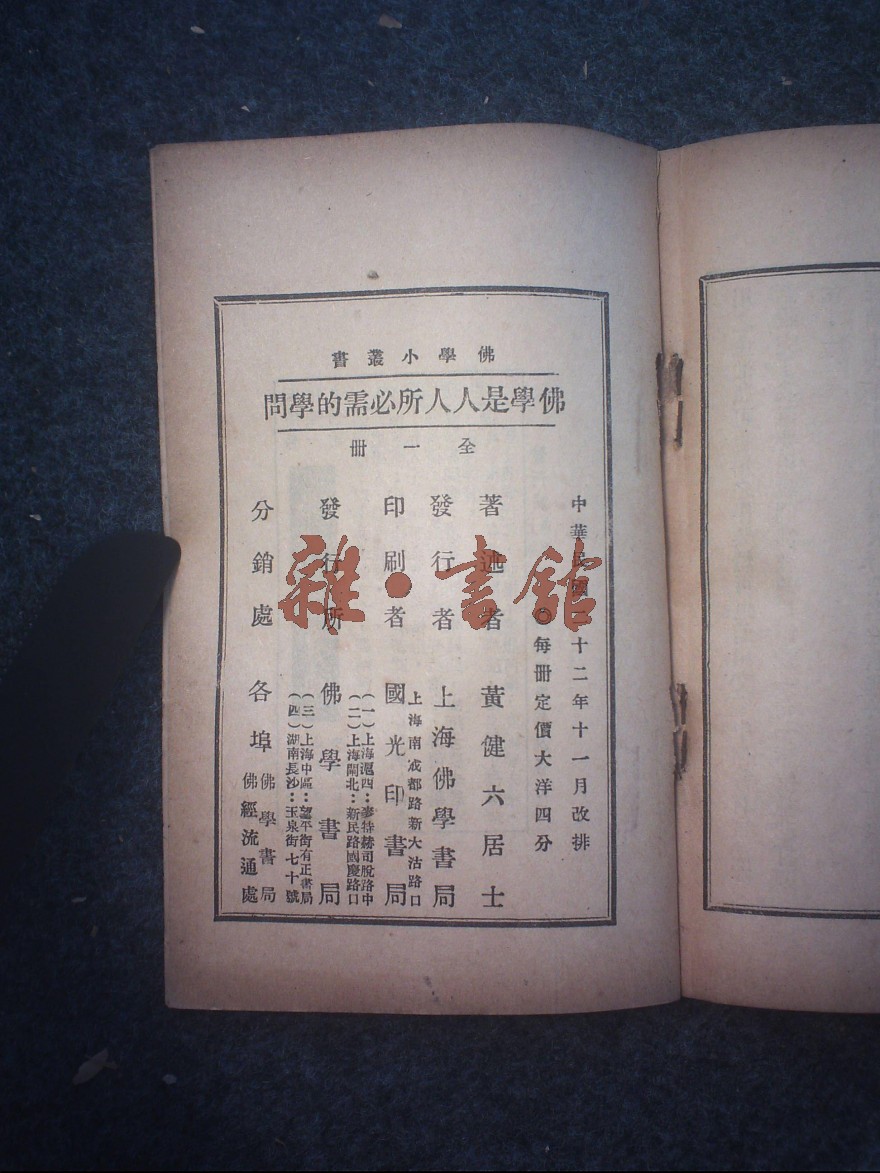 佛學小叢書
佛學是人人所必需的學問
全一冊
中華民國二十二年十一月改排
◯每冊定價大洋四分
著述者 黃健六居士
發行者 上海佛學書局
印刷者 上海南成都路新大沽路口
國光印書局
發行所 佛學書局
(一)上海滬西：麥特赫司脫路中
(二)上海閘北：新民路國慶路口
(三)上海中區：望平街有正書局
(四)湖南長沙：玉泉街七十號
分銷處 各埠 佛學書局
佛經流通處
雜·書館